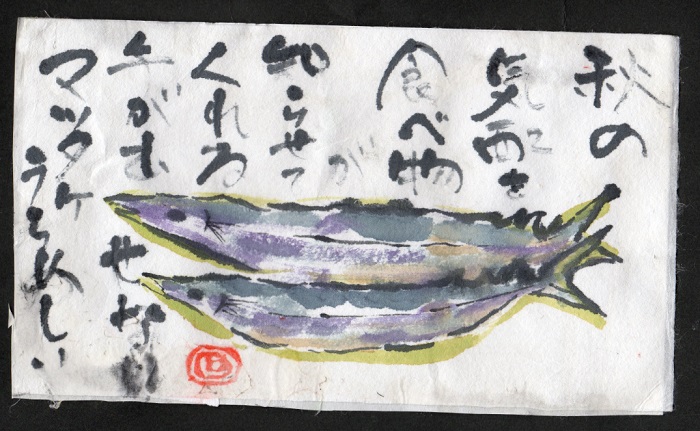 秋の
気配を
食べ物が
知らせて
くれる
手が出
せない
マツタケ
うらめしい